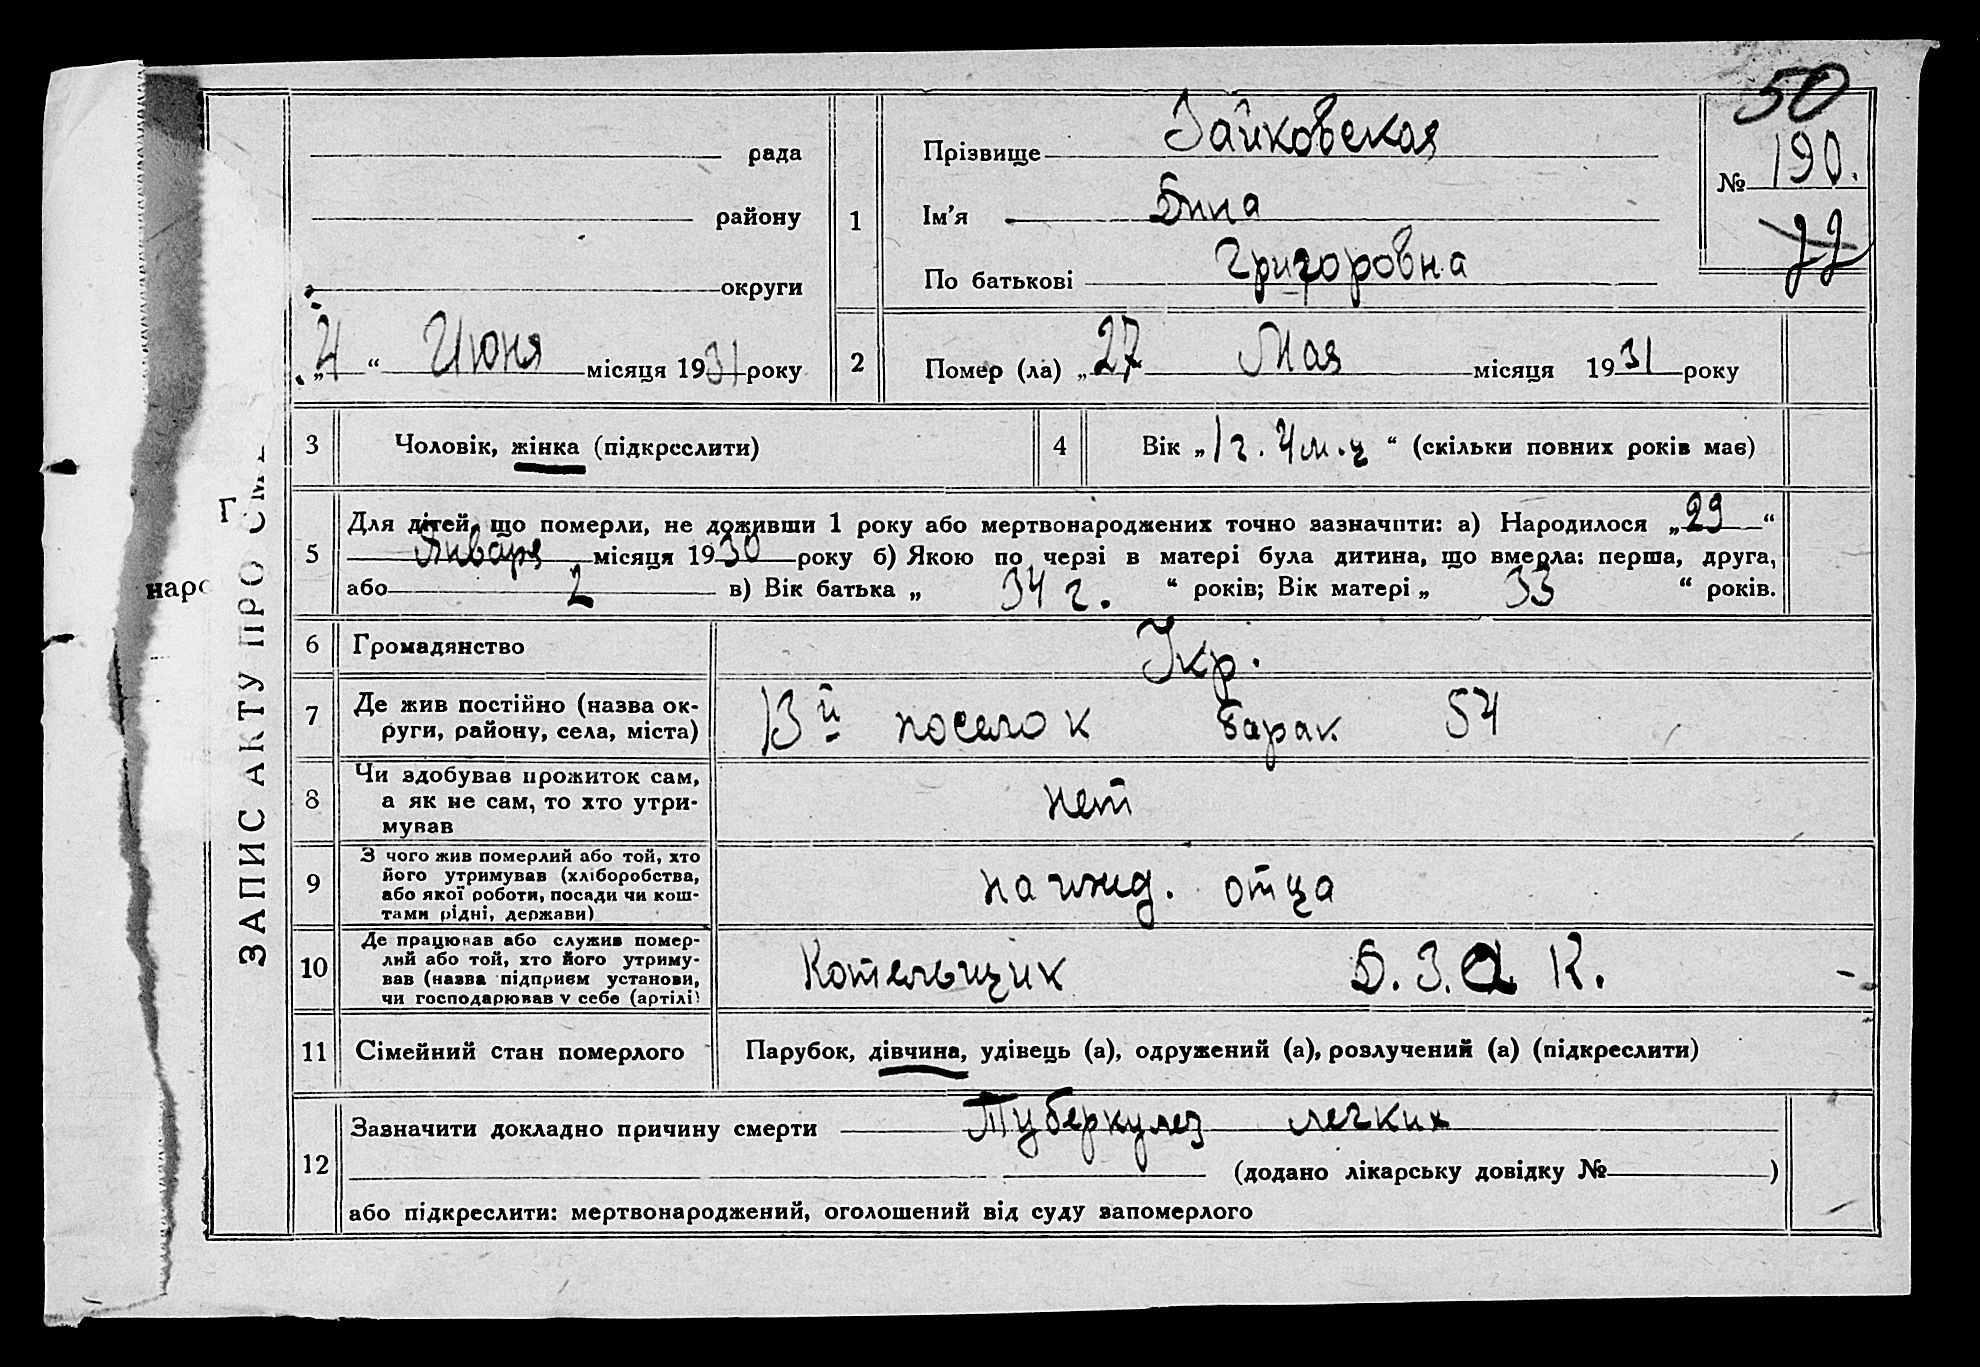 50
№ 190.
рада
району
округи
„4“ Июня місяця 1931 року
1
Прізвище Зайковская
Ім'я Бина
По батькові Григоровна
2
Помер (ла) „27 Мая місяця 1931 року
3
Чоловік, жінка (підкреслити)
4
Вік „1 г. 4 м. “ (скільки повних років має)
5
Для дітей, що померли, не доживши 1 року або мертвонароджених точно зазначити: а) Народилося „29“
Января місяця 1930 року б) Якою по черзі в матері була дитина, що вмерла: перша, друга,
або 2 в) Вік батька „ 34 г. “ років; Вік матері „ 33 “ років.
6
Громадянство
Укр.
7
Де жив постійно (назва ок-
руги, району, села, міста)
13й поселок барак 54
8
Чи здобував прожиток сам,
а як не сам, то хто утри-
мував
нет
9
З чого жив померлий або той, хто
його утримував (хліборобства,
або якої роботи, посади чи кош-
тами рідні, держави)
на ижд. отца
10
Де працював або служив помер-
лий або той, хто його утриму-
вав (назва підприєм установи,
чи господарював у себе (артілі)
Котельщик Б. З. К.
11
Сімейний стан померлого
Парубок, дівчина, удівець (а), одружений (а), розлучений (а) (підкреслити)
12
Зазначити докладно причину смерти Туберкулез легких
(додано лікарську довідку № )
або підкреслити: мертвонароджений, оголошений від суду запомерлого
ЗАПИС АКТУ ПРО
наро